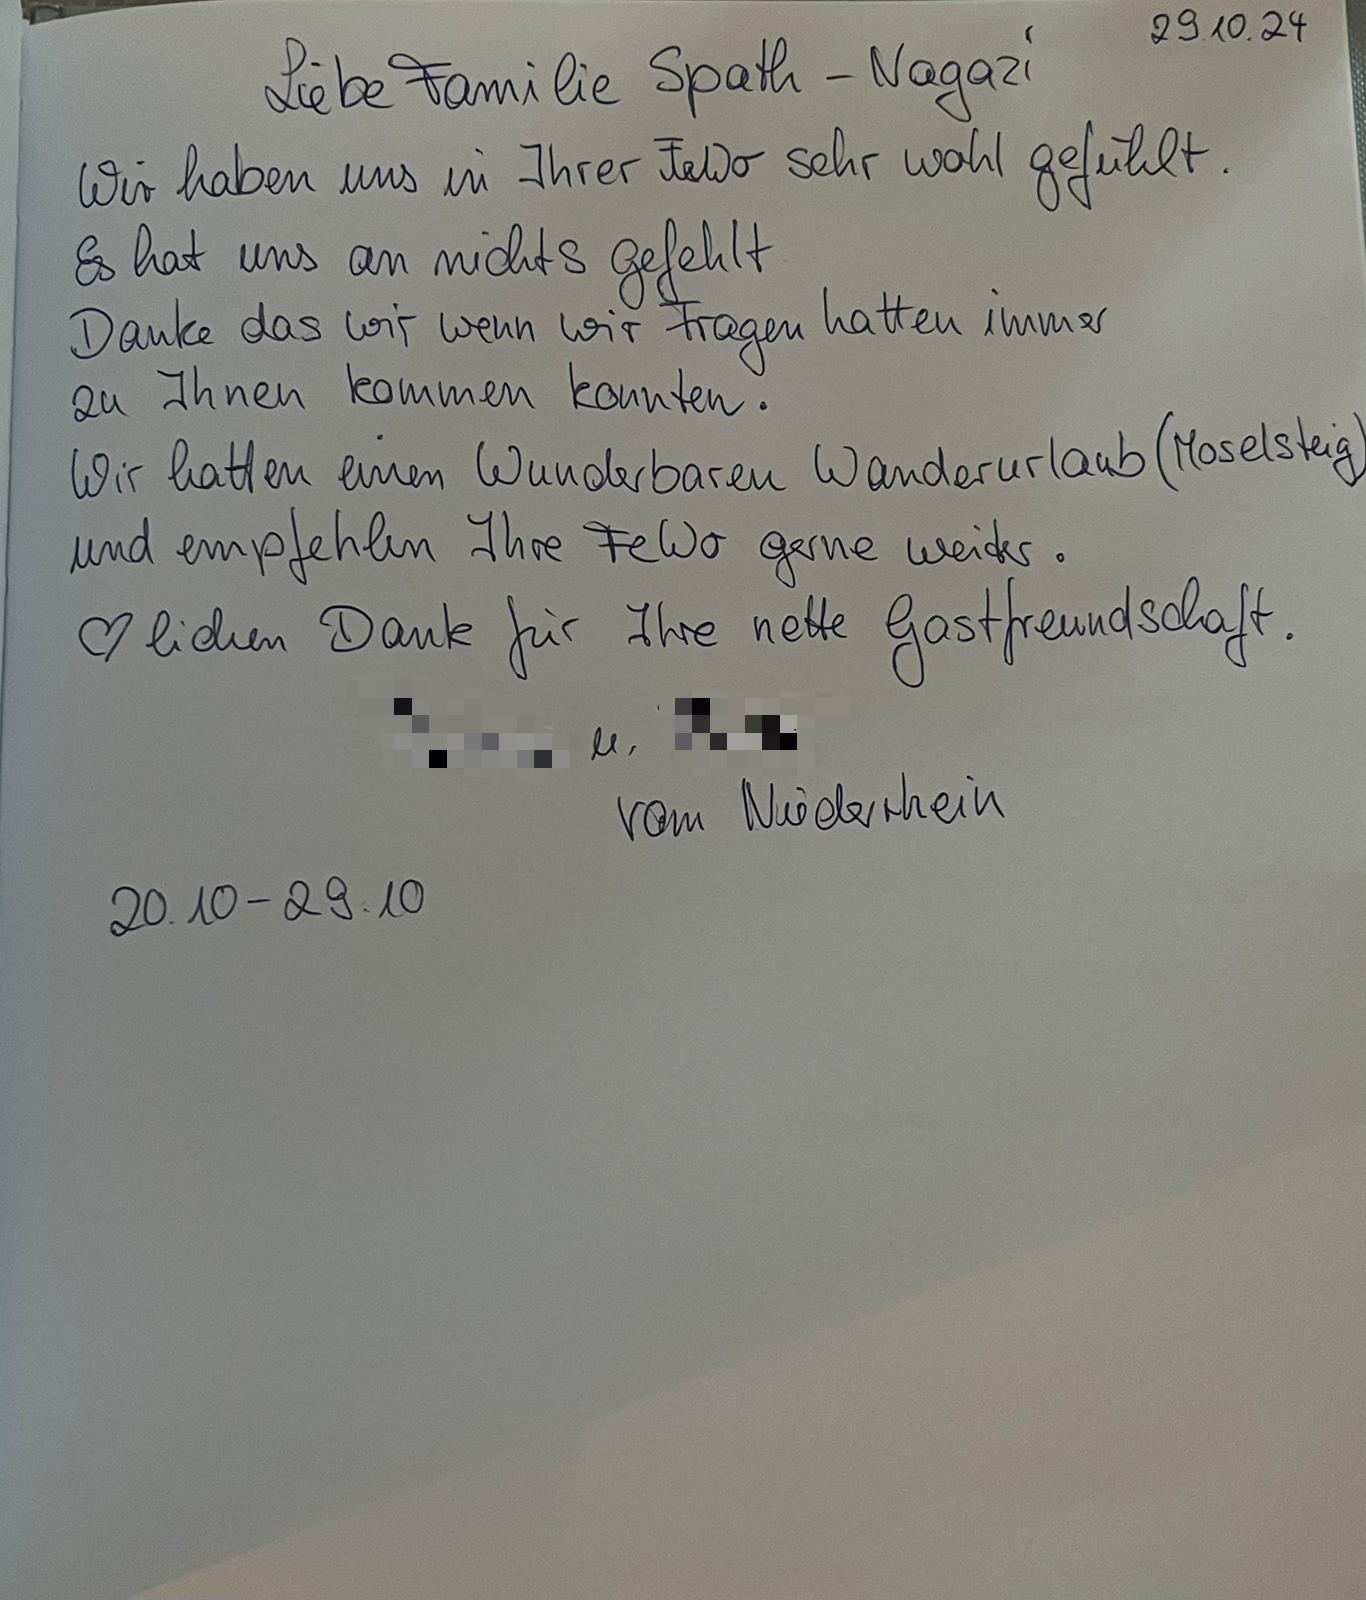 29.10.24
Liebe Familie Spath - Nagazi
Wir haben uns in Ihrer FeWo sehr wohl gefühlt.
Es hat uns an nichts gefehlt
Danke das wir wenn wir Fragen hatten immer
zu Ihnen kommen konnten.
Wir hatten einen Wunderbaren Wanderurlaub (Moselsteig)
und empfehlen Ihre FeWo gerne weiter.
♡lichen Dank für Ihre nette Gastfreundschaft.
u.
vom Niederrhein
20.10 - 29.10